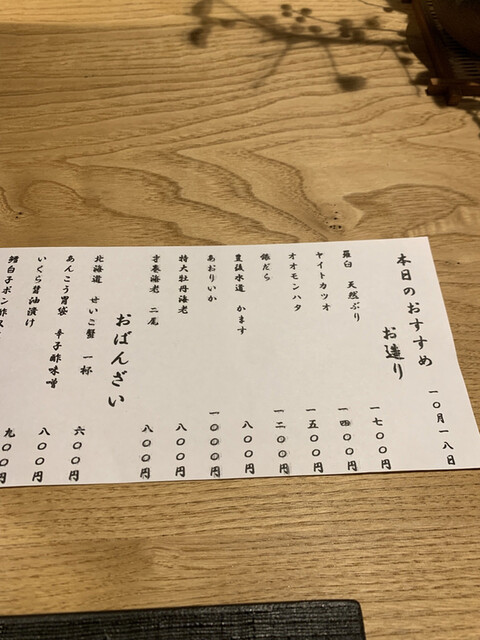 本日のおすすめ 一〇月一八日
お造り
羅臼 天然ぶり 一七〇〇円
ヤイトカツオ 一四〇〇円
オオモンハタ 一五〇〇円
銀だら 一二〇〇円
豊後水道 かます 八〇〇円
あおりいか 一〇〇〇円
特大牡丹海老 八〇〇円
才巻海老 二尾 八〇〇円
おばんざい
北海道 せいこ蟹 一杯 六〇〇円
あんこう胃袋 辛子酢味噌 八〇〇円
いくら醤油漬け 九〇〇円
鱈白子ポン酢